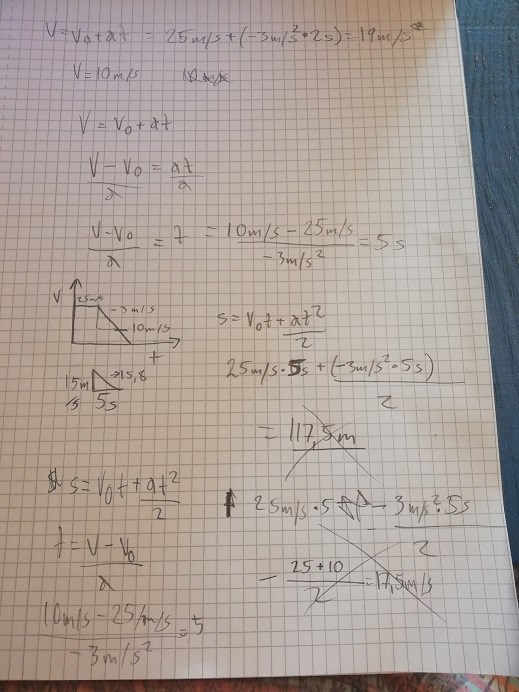 V = V₀ + at = 25m/s + (-3m/s² · 2s) = 19m/s
V = 10m/s
V = V₀ + at
V - V₀ = at
a a
V - V₀ = t = 10m/s - 25m/s = 5s
a -3m/s²
V 25m/s -3m/s
10m/s
t
s = V₀t + at²
2
15m/s 15,8
5s
25m/s · 5s + (-3m/s² · 5s)
2
= 117,5m
s = V₀t + at²
2
25m/s · 5 - 3m/s² · 5s
2
t = V - V₀
a
- 25 + 10 = 17,5m/s
2
10m/s - 25m/s = 5
-3m/s²